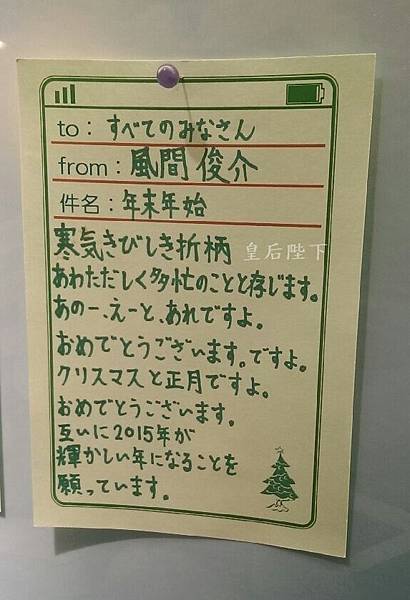 to：すべてのみなさん
from：風間 俊介
件名：年末年始
寒気きびしき折柄
皇后陛下
あわただしく多忙のことと存じます。
あのー、えーと、あれですよ。
おめでとうございます。ですよ。
クリスマスと正月ですよ。
おめでとうございます。
互いに2015年が
輝かしい年になることを
願っています。